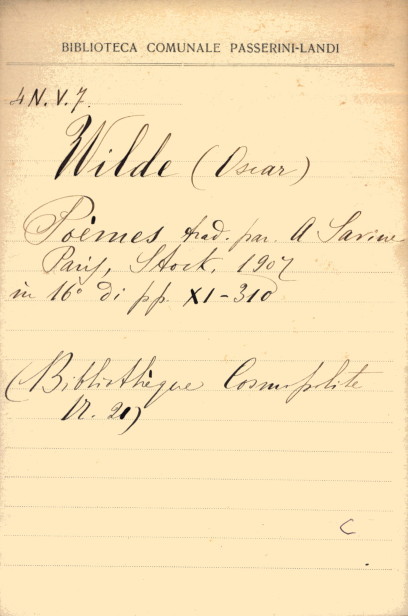 BIBLIOTECA COMUNALE PASSERINI-LANDI
4 N. V. 7.
Wilde (Oscar)
Poèmes trad. par. A Savine
Paris, Stock, 1907
in 16° di pp. XI-310
(Bibliothèque Cosmopolite
N. 20)
C